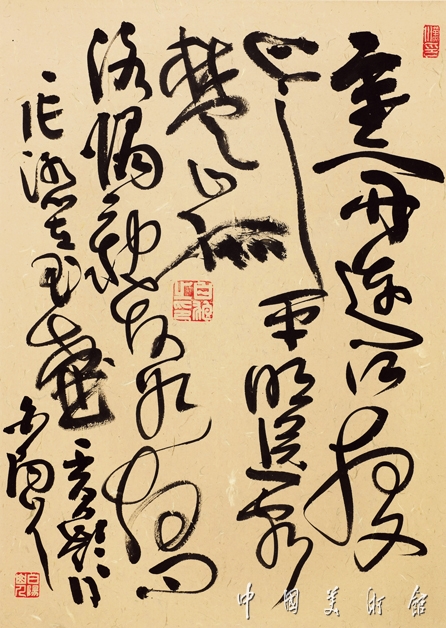 寒雨連江夜入
吴平明送客
楚山孤
洛陽親友如相問
一片冰心在玉壺
王昌齡詩
中国美术馆